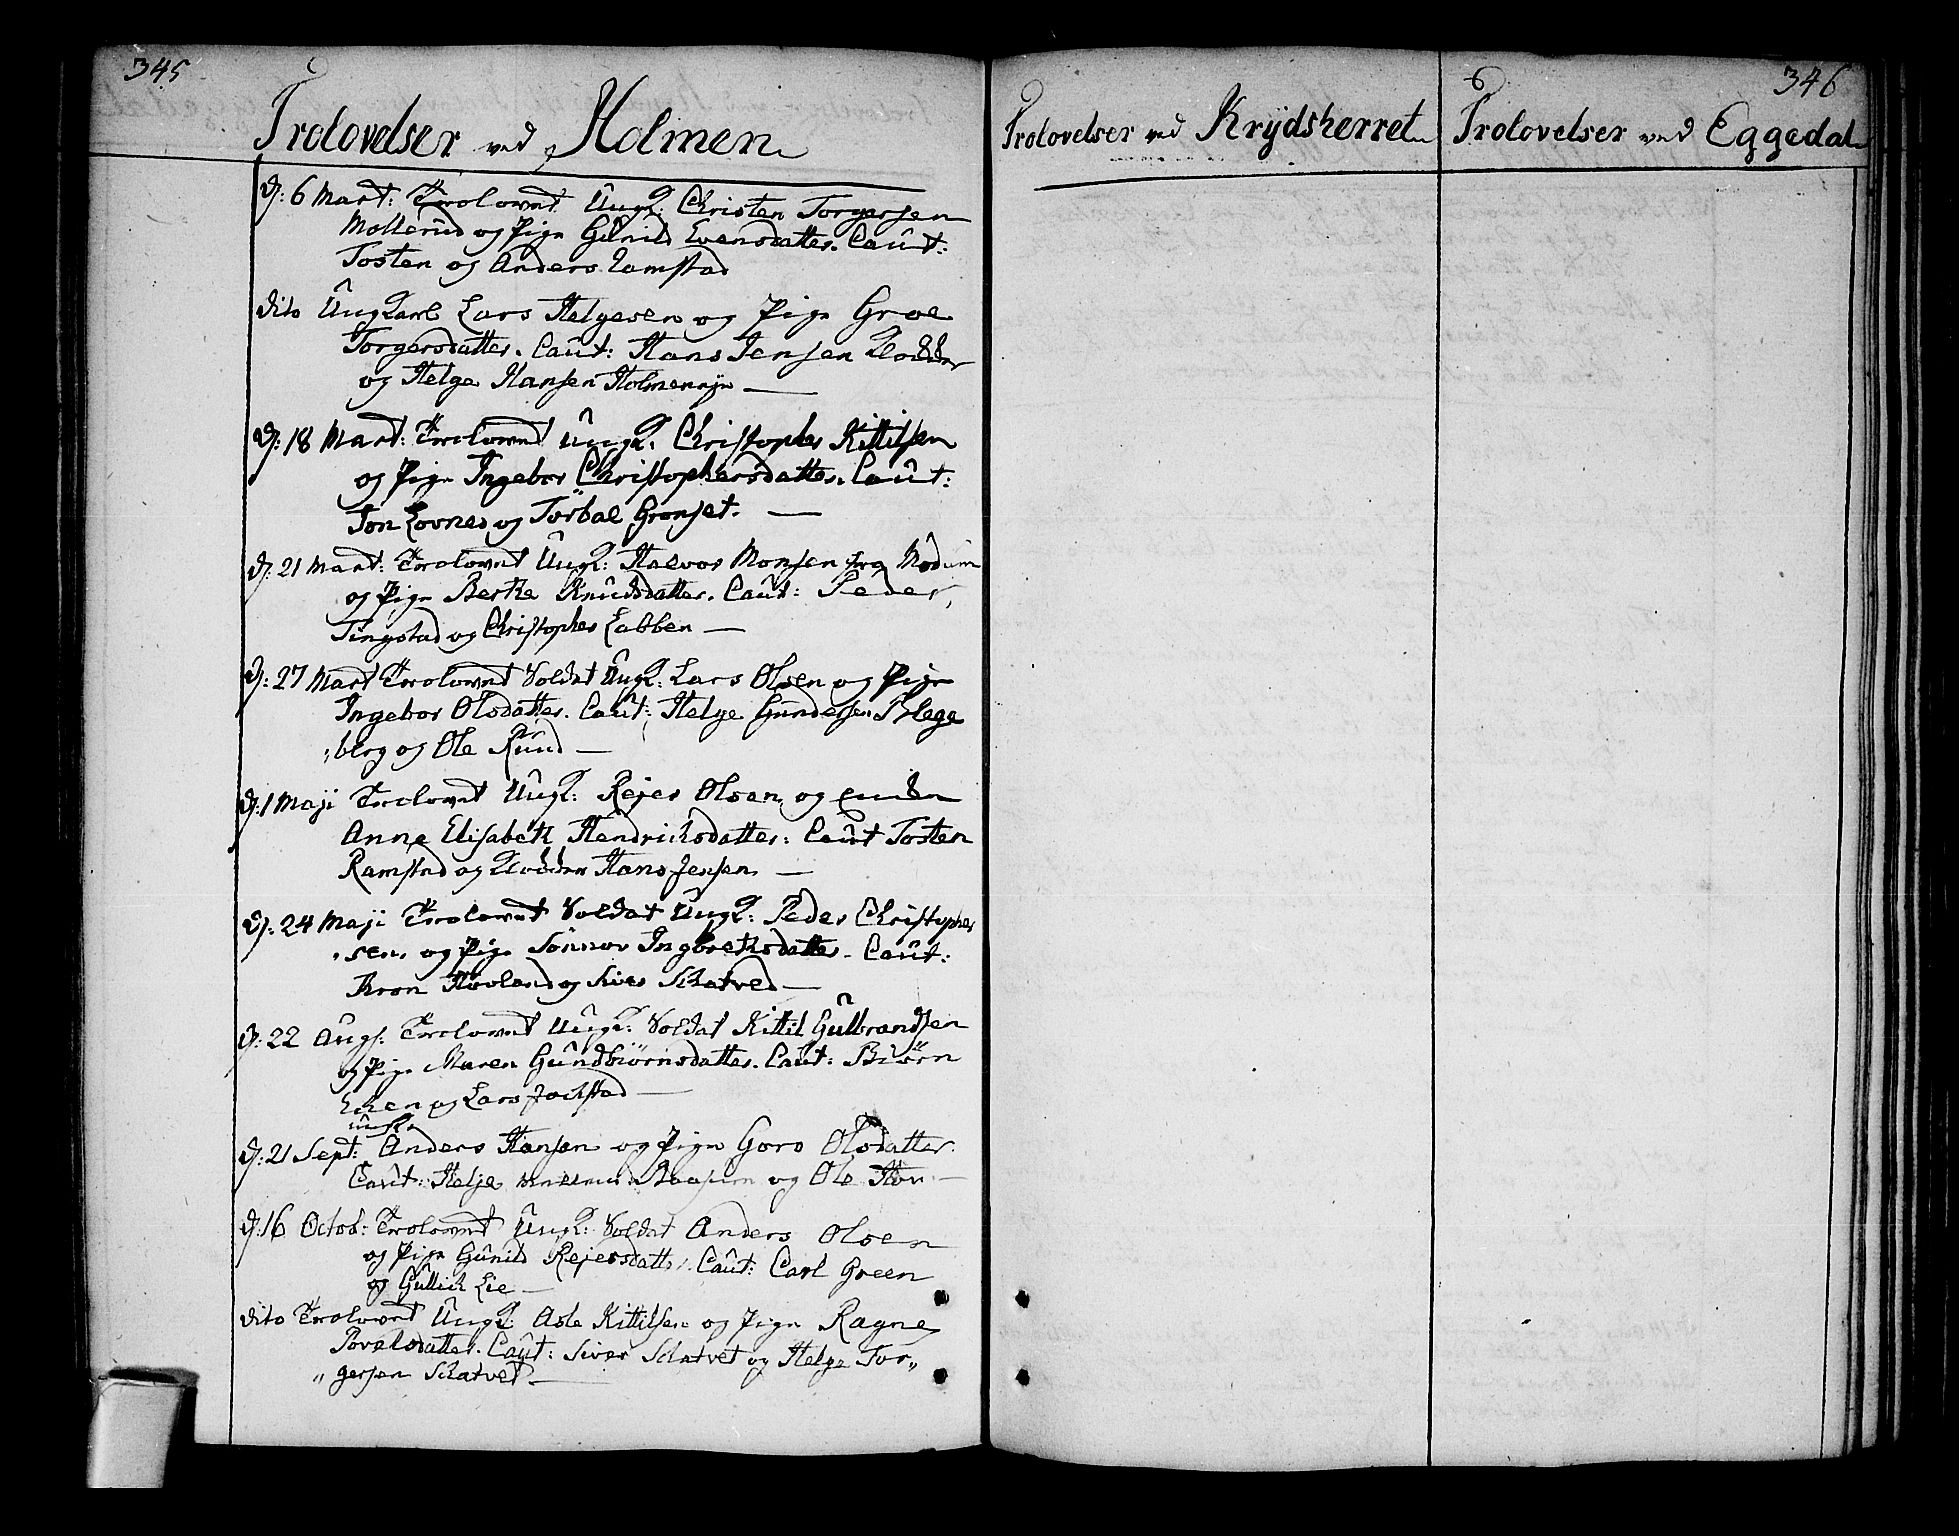 345
Trolovelser ved Holmen
D: 6 Mart: Trolovet Ungk: Christen Torgersen
Mollerud og Pige Gunild Evensdatter. Caut:
Tosten og Anders Ramstad
dito Ungkarl Lars Helgesen og Pige Groe
Torgersdatter. Caut: Hans Jensen Klokker
og Helge Hansen Holmennje
D: 18 Mart: Trolovet Ungk. Christopher Kittilsen
og Pige Ingebor Christophersdatter. Caut:
Jon Lovnes og Torbal Gronset.
D: 21 Mart: Trolovet Ungk: Halvor Monsen fra Modum
og Pige Berthe Knudsdatter. Caut: Peder
Tingstad og Christopher Labben
D: 27 Mart Trolovet Soldat Ungk: Lars Olsen og Pige
Ingebor Olsdatter. Caut: Helge Gundersen Blege
berg og Ole Ruud
D: 1 Maji Trolovet Ungk: Rejer Olsen og Enken
Anne Elisabeth Hendrichsdatter: Caut Tosten
Ramstad og Klokker Hans Jensen
D: 24 Maji Trolovet Soldat Ungk: Peder Christopher
sen og Pige Sönnov Ingbrethsdatter. Caut:
Thron Hovland og Siver Schatved
D: 22 Augs: Trolovet Ungk: Soldat Kittil Gulbrandsen
og Pige Maren Gundbiörnsdatter. Caut: Biörn
Eken og Lars Jochstad
ungk.
D: 21 Sept: Anders Hansen og Pige Goro Olsdatter.
Caut: Helje Braasen og Ole Hov
D: 16 Octob: Trolovet Ungk: Soldat Anders Olsen
og Pige Gunild Rejersdatter. Caut: Carl Green
og Gullich Lie
dito Trolovet Ungk: Asle Kittilsen og Pige Ragne
Povelsdatter. Caut: Siver Schatvet og Helge Tor„
„ gersen Schatvet
Trolovelser ved Krydsherret
346
Trolovelser ved Eggedal